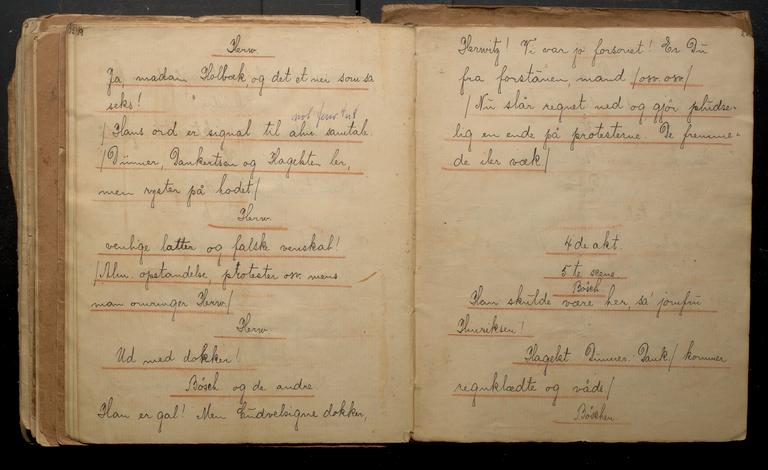 Herw.
Ja, madam Holbæk, og det et nei som sa
seks!
/Hans ord er signal til alm. samtale.
/Dünner, Dankertsen og Hagekten ler,
men ryster på hodet/
Herw.
venlige latter og falsk venskab!
/Alm. opstandelse, protester osv. mens
man omringer Herw/
Herw.
Ud med dokker!
Bösch og de andre
Han er gal! Men Gudvelsigne dokker,
Herwitz! Vi var jo forsonet! Er Du
fra forstanen, mand /osv. osv/
/Nu slår regnet ned og gjør pludse-
lig en ende på protesterne. De fremme-
de iler væk/
4de akt.
5te scene
Bösch
Han skulde være her, sa' jomfru
Henriksen!
Hagekt Dünner. Dank/ kommer
regnklædte og våde/
Böschen